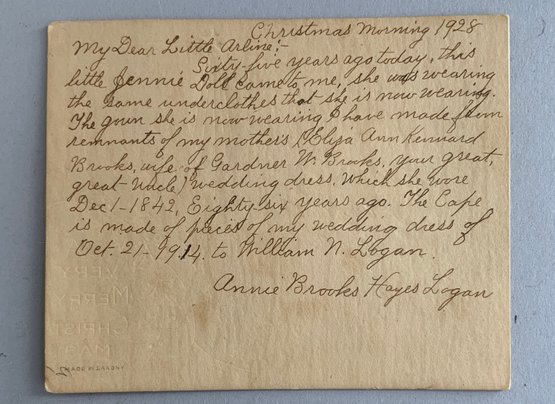 Christmas Morning 1928
My Dear Little Arline:-
Sixty-five years ago today, this
little Jennie Doll came to me, she was wearing
the same underclothes that she is now wearing.
The gown she is now wearing I have made from
remnants of my mother's, (Eliza Ann Kennard
Brooks, wife of Gardner W. Brooks, your great,
great Uncle) wedding dress, which she wore
Dec 1-1842, Eighty-six years ago. The Cape
is made of pieces of my wedding dress of
Oct. 21-1914. to William N. Logan.
Annie Brooks Hayes Logan
VERY
MERRY
CHRIST
MAS
MADE IN SAXONY